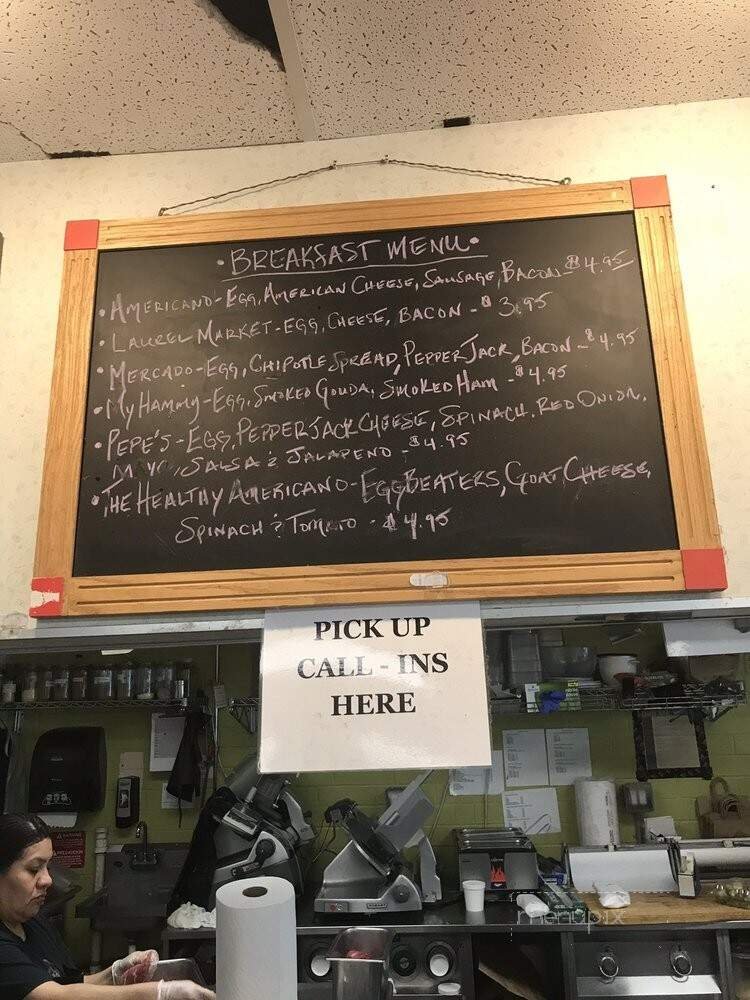 • BREAKFAST MENU •
• AMERICANO - EGG, AMERICAN CHEESE, SAUSAGE, BACON - $4.95
• LAUREL MARKET - EGG, CHEESE, BACON - $3.95
• MERCADO - EGG, CHIPOTLE SPREAD, PEPPER JACK, BACON - $4.95
• MY HAMMY - EGG, SMOKED GOUDA, SMOKED HAM - $4.95
• PEPE'S - EGG, PEPPERJACK CHEESE, SPINACH, RED ONION,
MAYO, SALSA & JALAPENO - $4.95
• THE HEALTHY AMERICANO - EGGBEATERS, GOAT CHEESE,
SPINACH & TOMATO - $4.95
PICK UP
CALL - INS
HERE
menupix